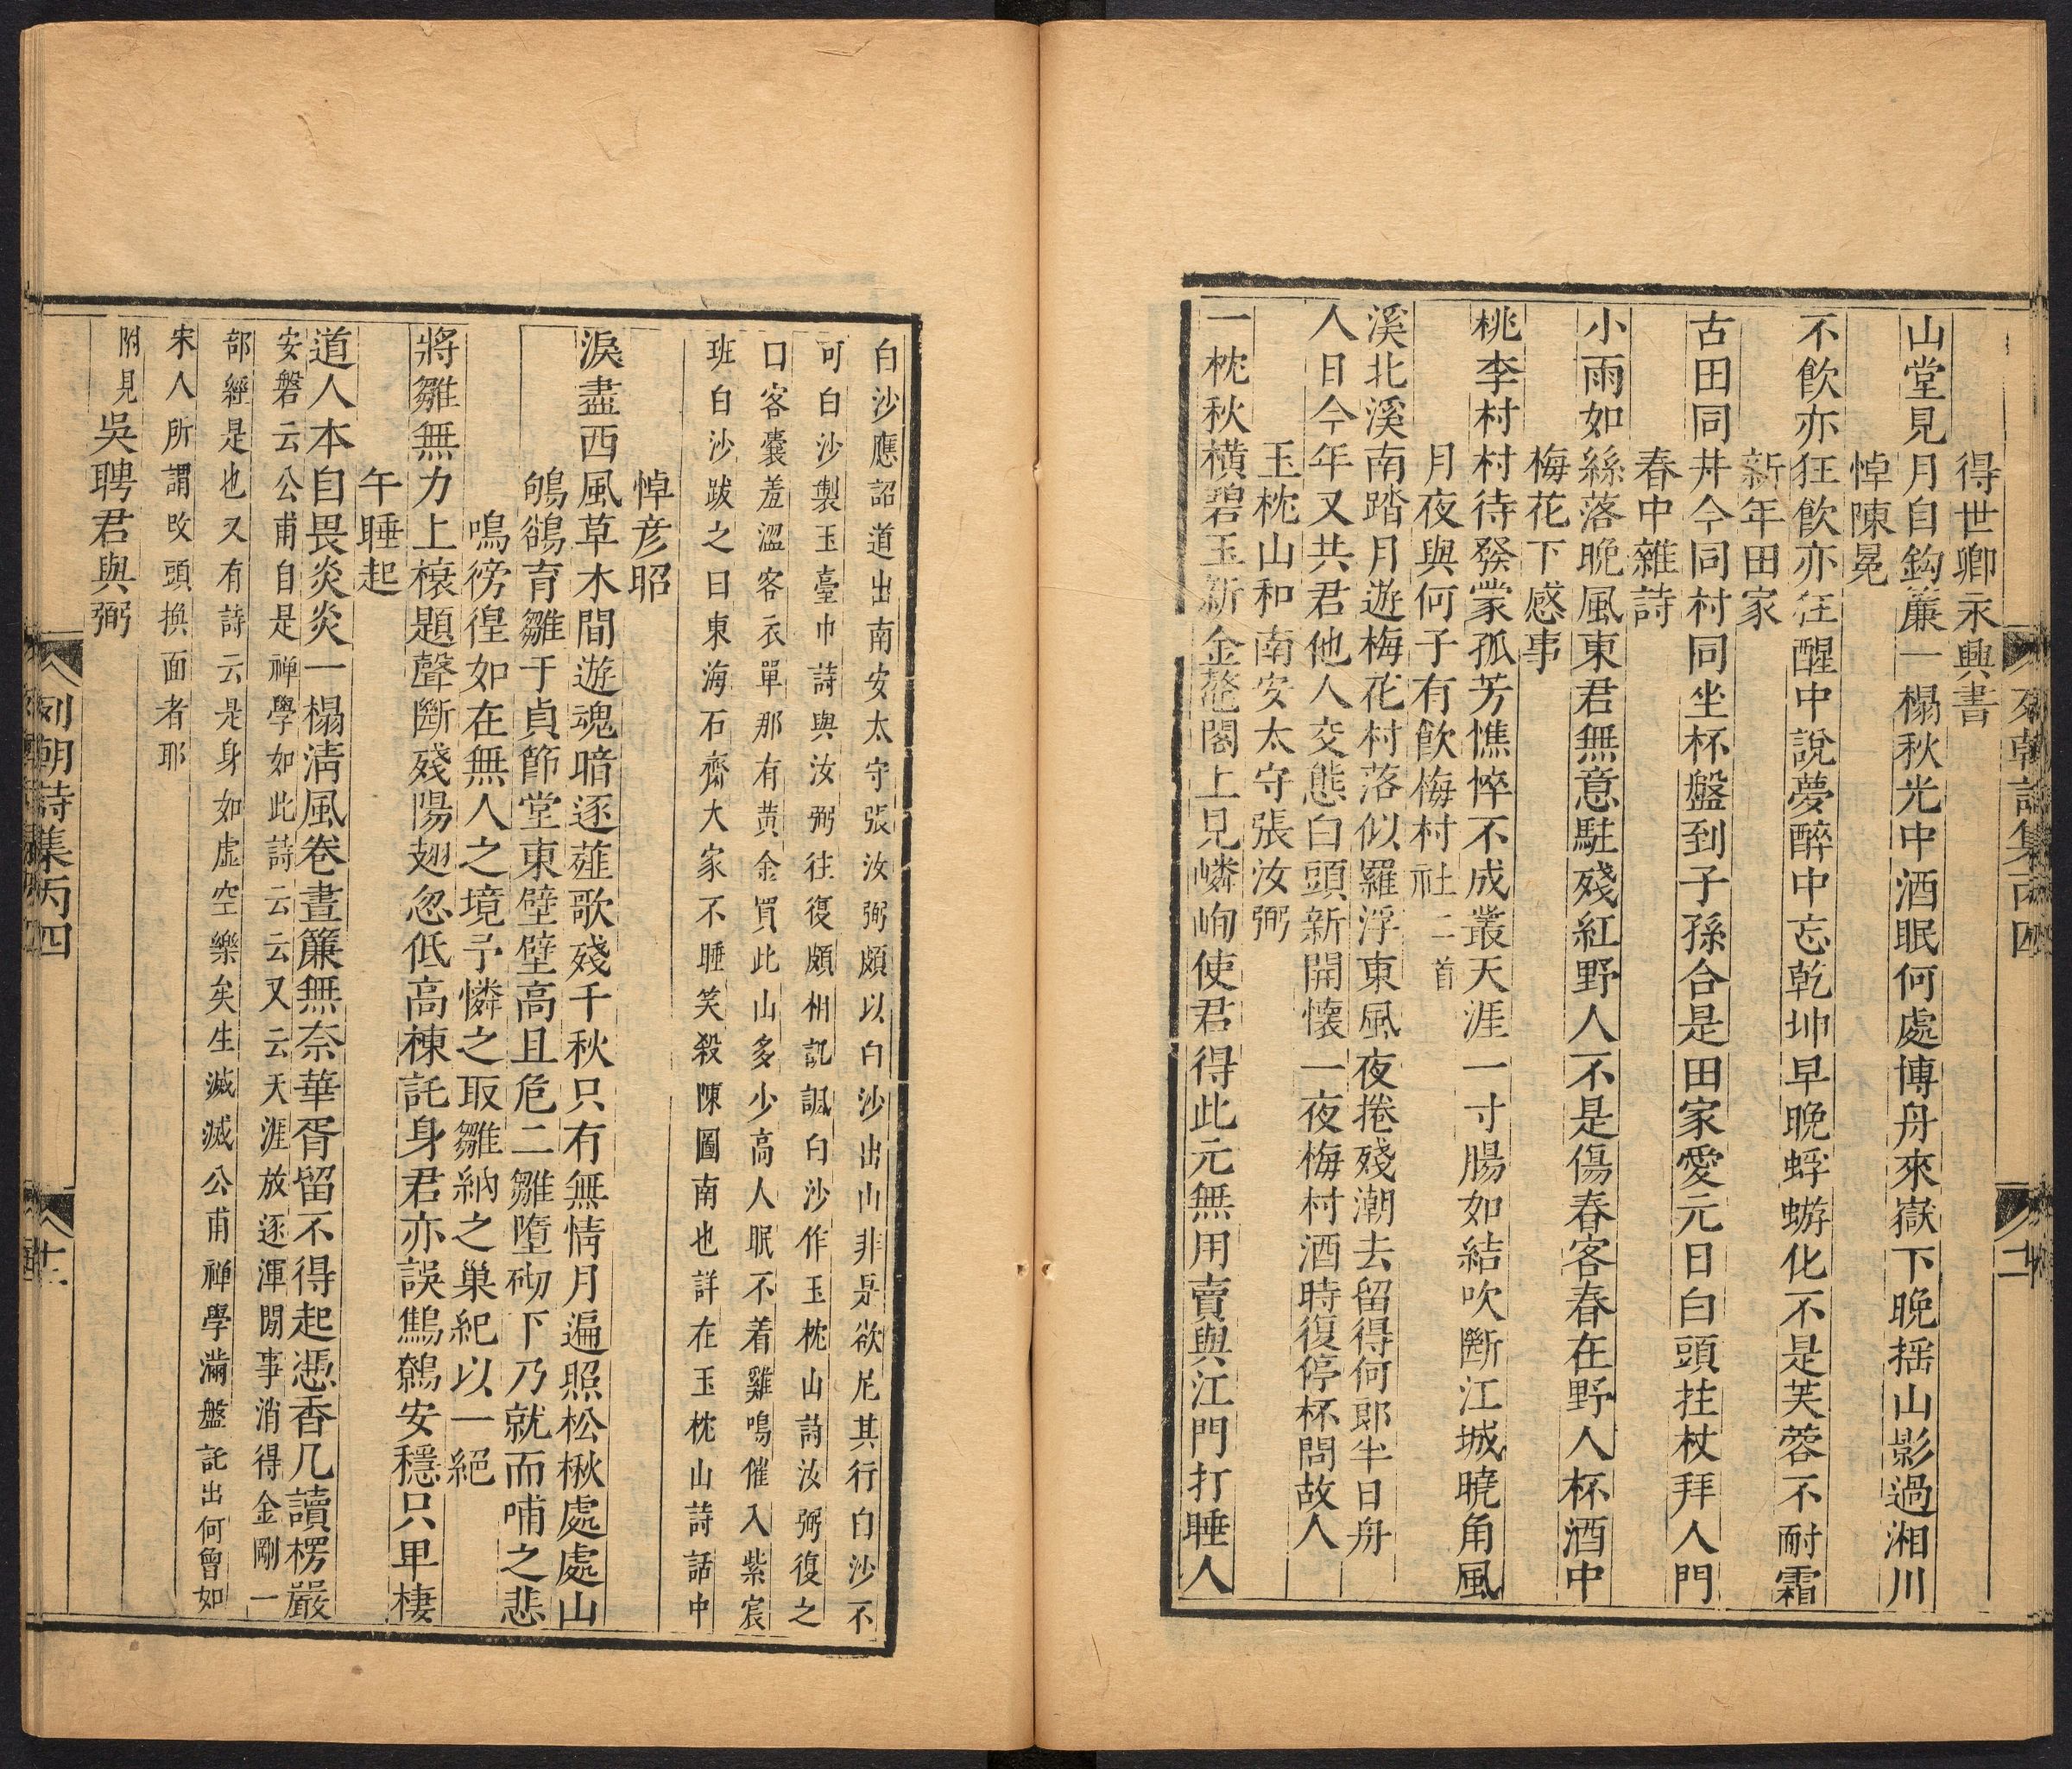 得世卿永興書
山堂見月自鈎簾一榻秋光中酒眠何處博舟來嶽下晚揺山影過湘川
悼陳冕
不飲亦狂飲亦狂醒中說夢醉中忘乾坤早晚蜉蝣化不是芙蓉不耐霜
新年田家
古田同井今同村同坐杯盤到子孫合是田家愛元日白頭拄杖拜人門
春中雜詩
小雨如絲落晚風東君無意駐殘紅野人不是傷春客春在野人杯酒中
梅花下感事
桃李村村待發蒙孤芳憔悴不成叢天涯一寸腸如結吹斷江城曉角風
月夜與何子有飲梅村社二首
溪北溪南踏月遊梅花村落似羅浮東風夜捲殘潮去留得何郎半日舟
人日今年又共君他人交態白頭新開懷一夜梅村酒時復停杯問故人
玉枕山和南安太守張汝弼
一枕秋橫碧玉新金鰲閣上見嶙峋使君得此元無用賣與江門打睡人
白沙應詔道出南安太守張汝弼頗以白沙出山非是欲尼其行白沙不
可白沙製玉臺巾詩與汝弼往復頗相訊諷白沙作玉枕山詩汝弼復之
口客囊羞澀客衣單那有黃金買此山多少高人眠不着雞鳴催入紫宸
班白沙跋之曰東海石齋大家不睡笑殺陳圖南也詳在玉枕山詩話中
悼彥昭
淚盡西風草木間遊魂暗逐薤歌殘千秋只有無情月遍照松楸處處山
鴝鵒育雛于貞節堂東壁壁高且危二雛墮砌下乃就而哺之悲
鳴徬徨如在無人之境予憐之取雛納之巢紀以一絕
將雛無力上榱題聲斷殘陽翅忽低高棟託身君亦誤鷦鷯安穩只卑棲
午睡起
道人本自畏炎炎一榻淸風卷晝簾無奈華胥留不得起憑香几讀楞嚴
安磐云公甫自是禅學如此詩云云又云天涯放逐渾閒事消得金剛一
部經是也又有詩云是身如虛空樂矣生滅滅公甫禅學滿盤託出何曾如
宋人所謂改頭換面者耶
附見吳聘君與弼
列朝詩集丙四